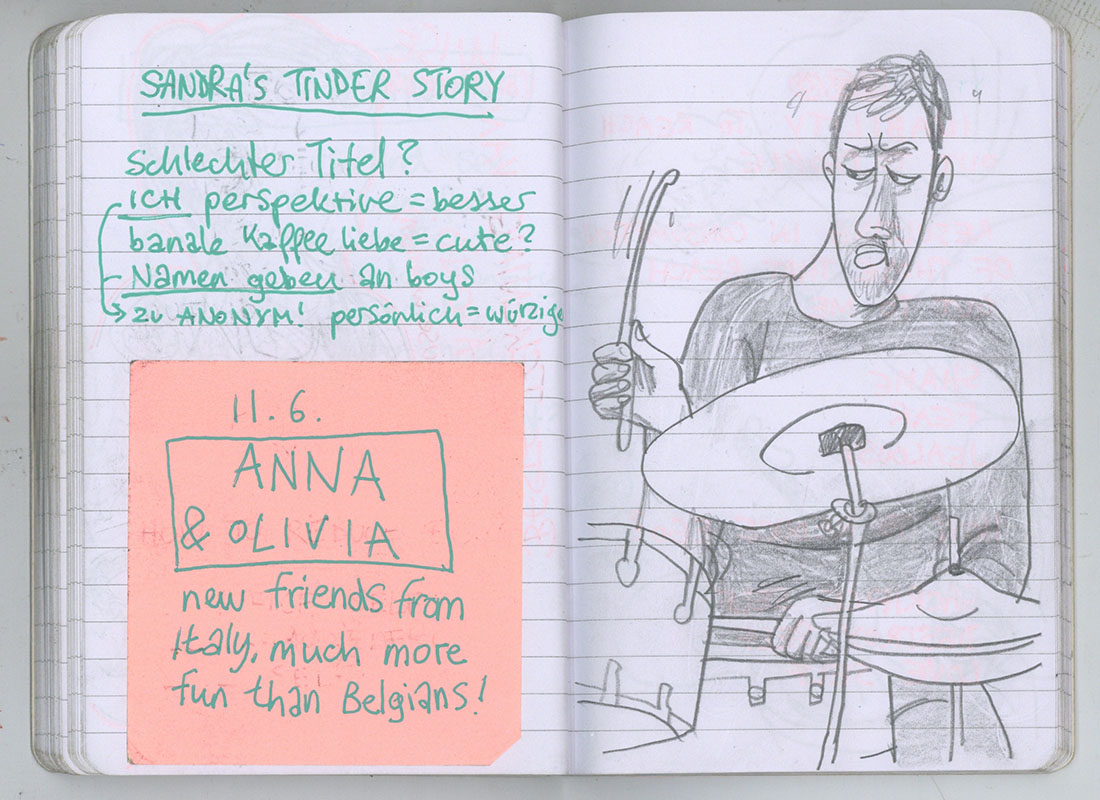 SANDRA'S TINDER STORY
schlechter Titel?
ICH perspektive = besser
banale Kaffee liebe = cute?
Namen geben an boys
→ zu ANONYM! persönlich = würzige
11.6.
ANNA
& OLIVIA
new friends from
Italy, much more
fun than Belgians!